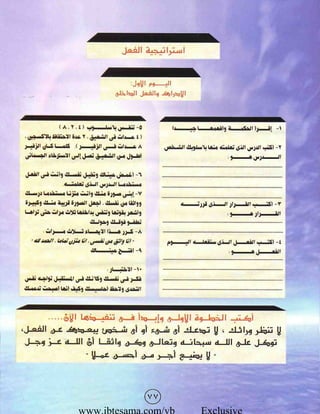 استراتيجية الفعل
اليوم الأول:
الإدراك والفعل الداخلي
١- إقرأ الحكمة وافهمها جيداً
٢- اكتب الدرس الذي تعلمته منها بأسلوبك الشخصي
الدرس هو:
٣- اكتب القرار الذي قررته
القرار هو:
٤- اكتب الفعل الذي ستفعله اليوم
الفعل هو:
٥- تنفس بأسلوب (٨،٢،٤)
(٤ عدات في الشهيق، ٢ عدة الاحتفاظ بالأكسجين،
٨ عدات في الزفير) كلما كان الزفير
أطول من الشهيق تصل إلى الاسترخاء الجسماني
٦- اغمض عينيك وتخيل نفسك وأنت في الفعل
مستخدماً الدرس الذي تعلمته
٧- إبني صورة منك وأنت متزناً مستخدماً درسك
وواثقاً من نفسك، اجعل الصورة قريبة منك وكبيرة
واشعر بقوتها وتنفس بداخلها ثلاث مرات حتى تراها
تطفو فوقك وحولك
٨- كرر هذا الإيحاء ثلاث مرات
"أنا واثق من نفسي، أنا متزن تماماً، الحمد لله"
٩- افتح عينيك
١٠- الاختبار:
فكر في نفسك وكأنك في المستقبل تواجه نفس
التحدي ولاحظ أحاسيسك وكيف أنها أصبحت تدعمك
أكتب الخطوة الأولى وإبدأ في تنفيذها الآن.....
لا تنظر ورائك، لا تدعك أي شيء أو أي شخص يبعدك عن الفعل،
توكل على الله سبحانه وتعالى وكن واثقاً أن الله عز وجل
"لا يضيع أجر من أحسن عملا"
٧٧
www.ibtesama.com/vb Exclusive